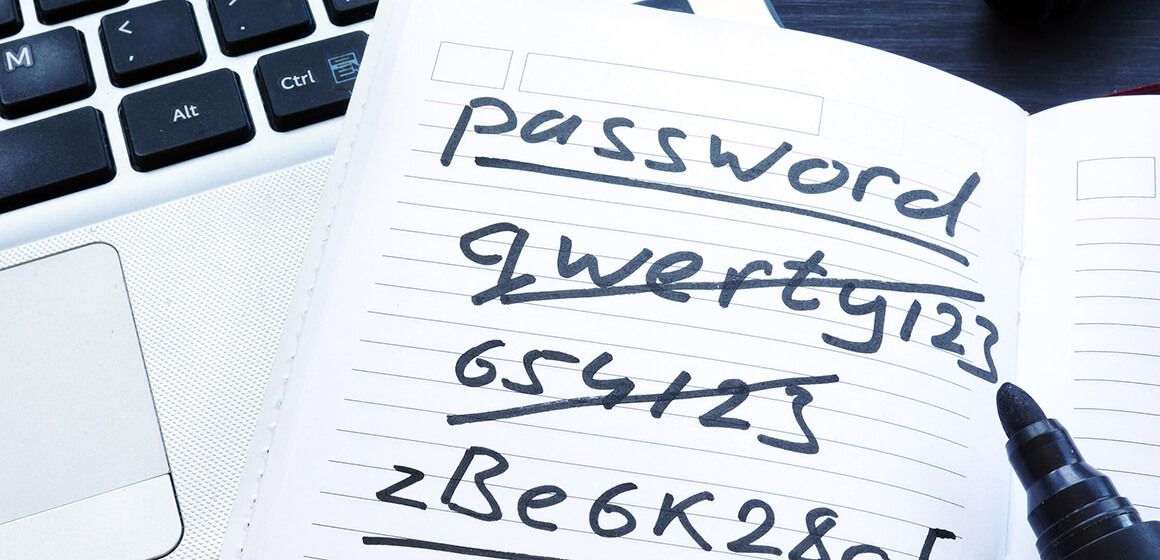 <
,
M
Alt
Ctrl
password
qwerty123
654123